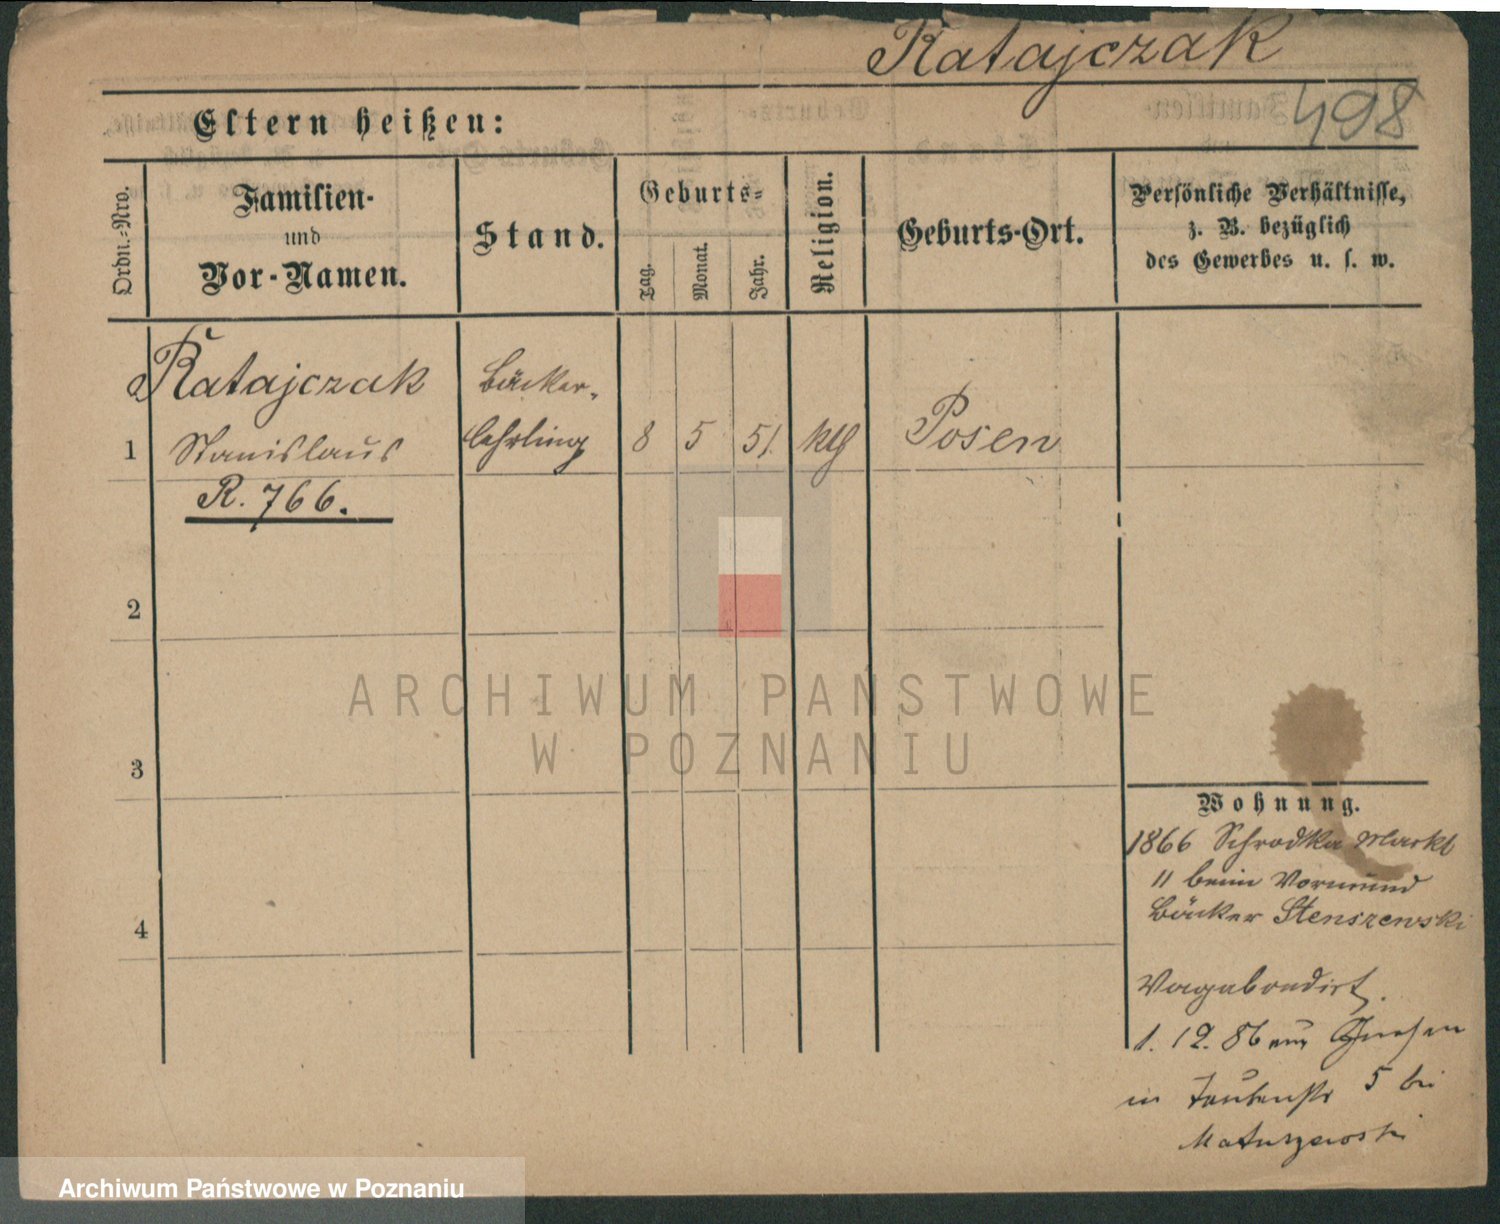 Ratajczak
498
Eltern heißen:
Ordn.-Nro.
Familien-
und
Vor-Namen.
Stand.
Geburts-
Tag.
Monat.
Jahr.
Religion.
Geburts-Ort.
Persönliche Verhältnisse,
z. B. bezüglich
des Gewerbes u. s. w.
Ratajczak
Bäcker-
1 Stanislaus lehrling 8 5 51. kth Posen
R. 766.
2
3
4
ARCHIWUM PAŃSTWOWE
W POZNANIU
Wohnung.
1866 Schrodka Markt
11 beim Vormund
Bäcker Stenszewski
Vagabondirt.
1. 12. 86 aus Gnesen
in Taubenstr 5 bei
Matuszewski
Archiwum Państwowe w Poznaniu